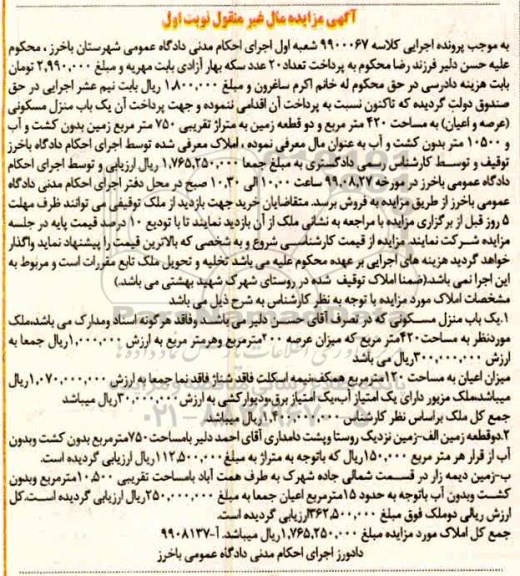 آگهی مزایده مال غیر منقول نوبت اول
به موجب پرونده اجرایی کلاسه ۹۹۰۰۰۶۷ شعبه اول اجرای احکام مدنی دادگاه عمومی شهرستان باخرز ، محکوم
علیه حسن دلیر فرزند رضا محکوم به پرداخت تعداد ۲۰ عدد سکه بهار آزادی بابت مهریه و مبلغ ۲,۹۹۰,۰۰۰ تومان
بابت هزینه دادرسی در حق محکوم له خانم اکرم ساغرون و مبلغ ۱,۸۰۰,۰۰۰ ریال بابت نیم عشر اجرایی در حق
صندوق دولت گردیده که تاکنون نسبت به پرداخت آن اقدامی ننموده و جهت پرداخت آن یک باب منزل مسکونی
(عرصه و اعیان) به مساحت ۴۲۰ متر مربع و دو قطعه زمین به متراژ تقریبی ۷۵۰ متر مربع زمین بدون کشت و آب
و ۱۰۵۰۰ متر بدون کشت و آب به عنوان مال معرفی نموده ، املاک معرفی شده توسط اجرای احکام دادگاه باخرز
توقیف و توسط کارشناس رسمی دادگستری به مبلغ جمعا ۱,۷۶۵,۲۵۰,۰۰۰ ریال ارزیابی و توسط اجرای احکام
دادگاه عمومی باخرز در مورخه ۹۹,۰۸,۲۷ ساعت ۱۰,۰۰ الی ۱۰,۳۰ صبح در محل دفتر اجرای احکام مدنی دادگاه
عمومی باخرز از طریق مزایده به فروش برسد. متقاضیان خرید جهت بازدید از ملک توقیفی می توانند ظرف مهلت
۵ روز قبل از برگزاری مزایده با مراجعه به نشانی ملک از آن بازدید نمایند تا با تودیع ۱۰ درصد قیمت پایه در جلسه
مزایده شرکت نمایند. مزایده از قیمت کارشناسی شروع و به شخصی که بالاترین قیمت را پیشنهاد نماید واگذار
خواهد گردید هزینه های اجرایی بر عهده محکوم علیه می باشد تخلیه و تحویل ملک تابع مقررات است و مربوط به
این اجرا نمی باشد.(ضمنا املاک توقیف شده در روستای شهرک شهید بهشتی می باشد.)
مشخصات املاک مورد مزایده با توجه به نظر کارشناس به شرح ذیل می باشد
۱.یک باب منزل مسکونی که در تصرف آقای حسن دلیر می باشد وفاقد هرگونه اسناد ومدارک می باشد،ملک
موردنظر به مساحت۴۲۰متر مربع که میزان عرصه ۳۰۰مترمربع وهرمتر مربع به ارزش ۱,۰۰۰,۰۰۰ریال جمعا به
ارزش ۳۰۰,۰۰۰,۰۰۰ریال می باشد
میزان اعیان به مساحت ۱۲۰مترمربع همکف-نیمه اسکلت فاقد شناژ فاقدنما جمعا به ارزش ۱,۰۷۰,۰۰۰,۰۰۰ریال
میباشد،ملک مزبور دارای یک امتیاز آب،یک امتیاز برق،ودیوارکشی به ارزش۳۰,۰۰۰,۰۰۰ریال میباشد
جمع کل ملک براساس نظر کارشناس ۱,۴۰۰,۰۰۰,۰۰۰ریال میباشد
۲.دوقطعه زمین الف-زمین نزدیک روستا وپشت دامداری آقای احمد دلیر بامساحت۷۵۰مترمربع بدون کشت وبدون
آب از قرار هر متر مربع ۱۵۰,۰۰۰ریال که باتوجه به متراژ به مبلغ۱۱۲,۵۰۰,۰۰۰ریال ارزیابی گردیده است.
ب-زمین دیمه زار در قسمت شمالی جاده شهرک به طرف همت آباد بامساحت تقریبی ۱۰,۵۰۰مترمربع وبدون
کشت وبدون آب باتوجه به حدود ۱۵مترمربع اعیان جمعا به مبلغ ۲۵۰,۰۰۰,۰۰۰ریال ارزیابی گردیده است،کل
ارزش ریالی دوملک فوق مبلغ ۳۶۲,۵۰۰,۰۰۰ارزیابی گردیده است.
جمع کل املاک مورد مزایده مبلغ ۱,۷۶۵,۲۵۰,۰۰۰ریال میباشد. آ-۹۹۰۸۱۳۷
دادورز اجرای احکام مدنی دادگاه عمومی باخرز